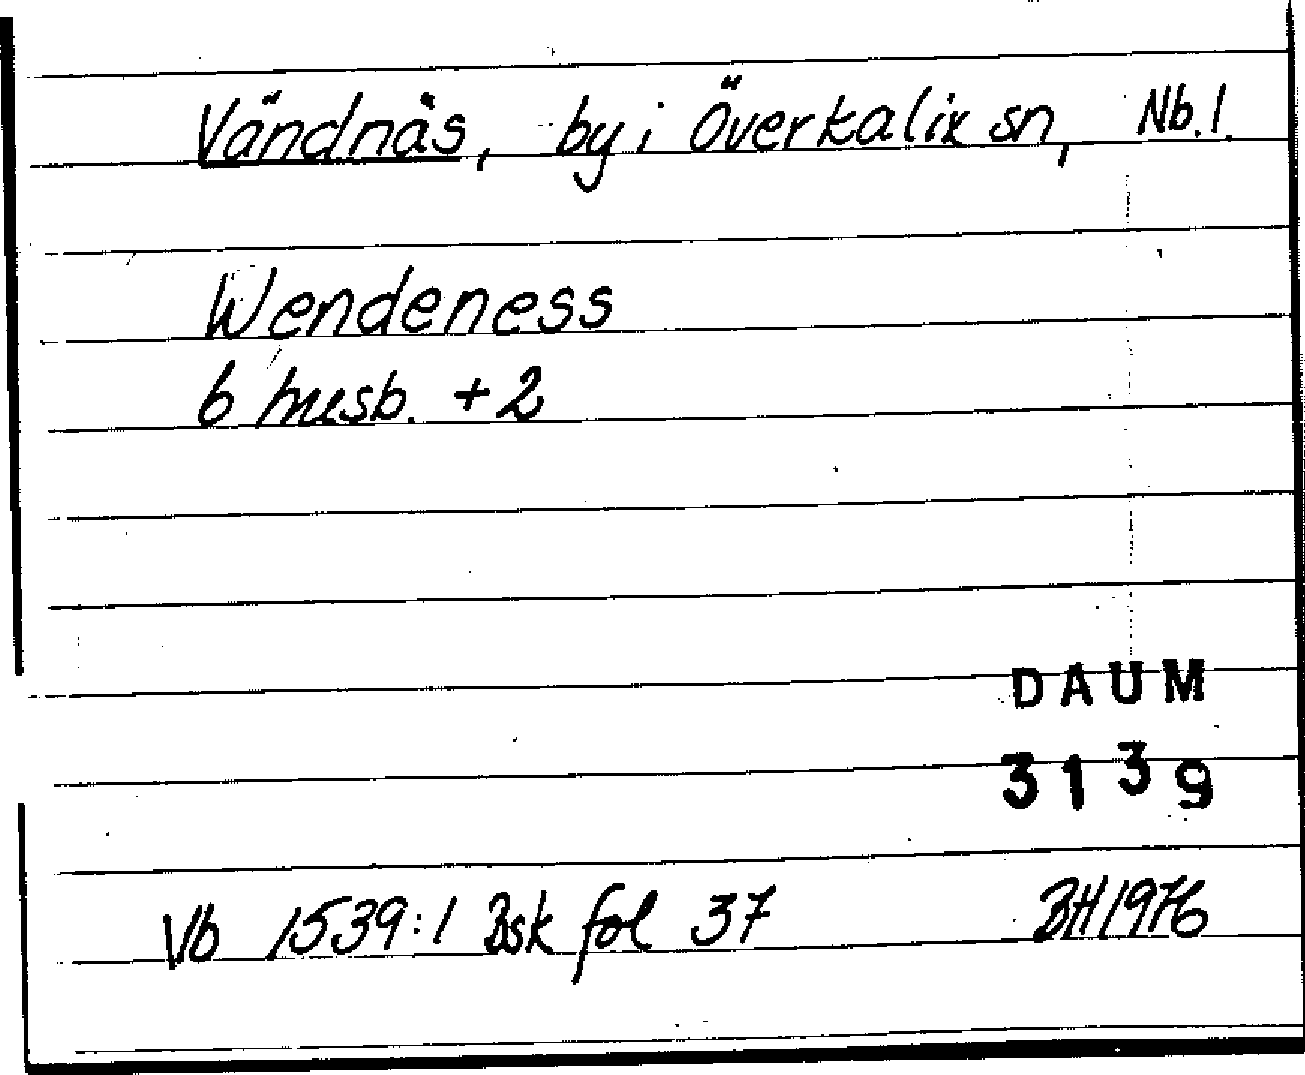 Vändnäs, by i Överkalix sn, Nb.l.
Wendeness
6 husb. +2
DAUM
3139
Vb 1539:1 Bsk fol 37 BH 1976